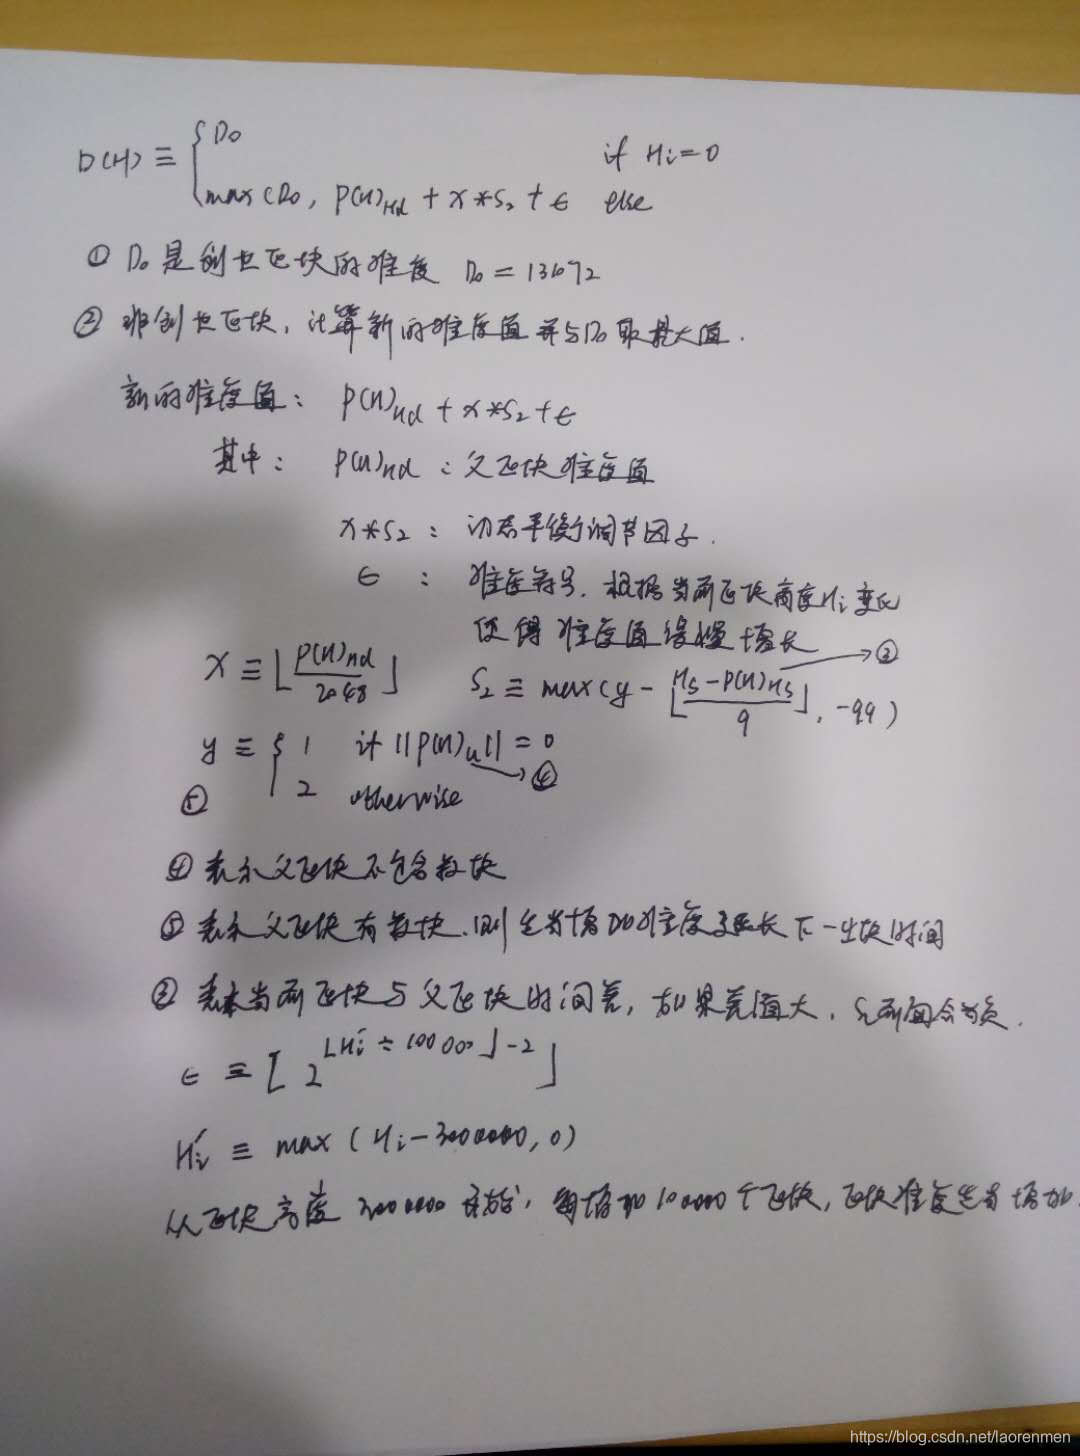 D(H) ≡ { D₀ if Hi = 0
max(D₀, P(H)Hd + x*S₂ + ϵ else
① D₀是创世区块的难度 D₀ = 13672
② 非创世区块,计算新的难度值并与D₀取最大值.
新的难度值: P(H)Hd + x*S₂ + ϵ
其中: P(H)Hd : 父区块难度值
x*S₂ : 动态平衡调节因子.
ϵ : 难度符号,根据当前区块高度Hi变化
使得难度值缓慢增长
x ≡ ⌊P(H)Hd / 2048⌋ S₂ ≡ max(y - ⌊Hs - P(H)Hs / 9⌋, -99) → ③
y ≡ { 1 if ||P(H)u|| = 0 → ④
⑤ 2 otherwise
④ 表示父区块不包含数块
⑤ 表示父区块有数块,则适当增加难度延长下一出块时间
③ 表示当前区块与父区块时间差,如果差值大,S₂前面会为负.
ϵ ≡ ⌊2^(⌊Hi′ ÷ 100000⌋-2)⌋
Hi′ ≡ max(Hi - 3000000, 0)
从区块高度3000000开始,每增加100000个区块,区块难度适当增加.
https://blog.csdn.net/laorenmen